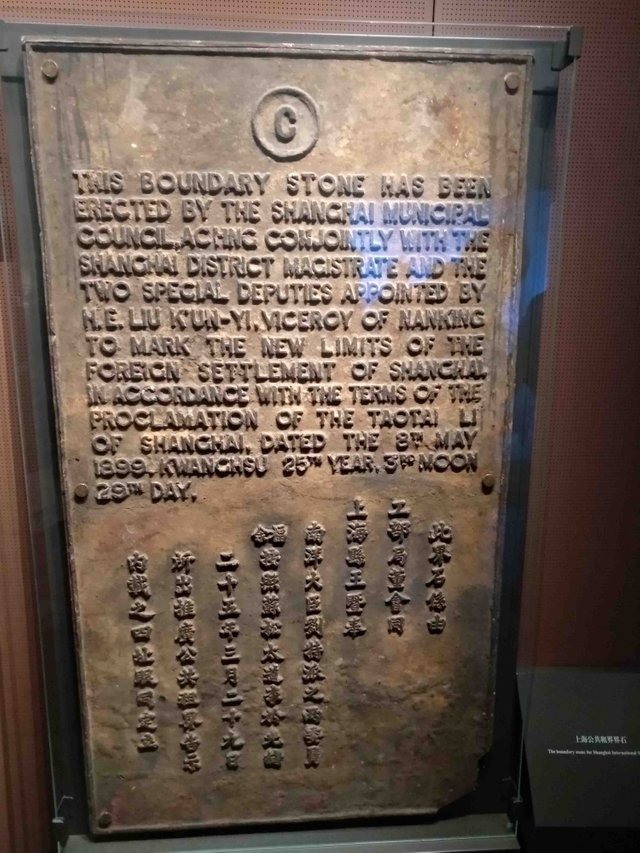 C
THIS BOUNDARY STONE HAS BEEN
ERECTED BY THE SHANGHAI MUNICIPAL
COUNCIL, ACTING CONJOINTLY WITH THE
SHANGHAI DISTRICT MAGISTRATE AND THE
TWO SPECIAL DEPUTIES APPOINTED BY
H.E. LIU K'UN-YI, VICEROY OF NANKING
TO MARK THE NEW LIMITS OF THE
FOREIGN SETTLEMENT OF SHANGHAI,
IN ACCORDANCE WITH THE TERMS OF THE
PROCLAMATION OF THE TAOTAI LI
OF SHANGHAI, DATED THE 8TH MAY
1899. KWANGHSU 25TH YEAR, 3RD MOON
29TH DAY.
此界石係由
工部局董會同
上海縣王暨奉
南洋大臣劉特派之委員
按照蘇松太道李於光緒
二十五年三月二十九日
所出推廣公共租界告示
內載之四址眼同定立
上海公共租界界石
The boundary stone for Shanghai International